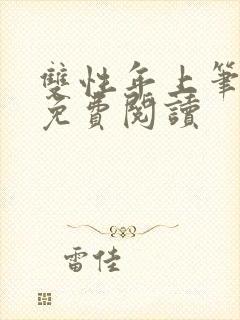 雙性年上筆
免費閱讀
雷佳